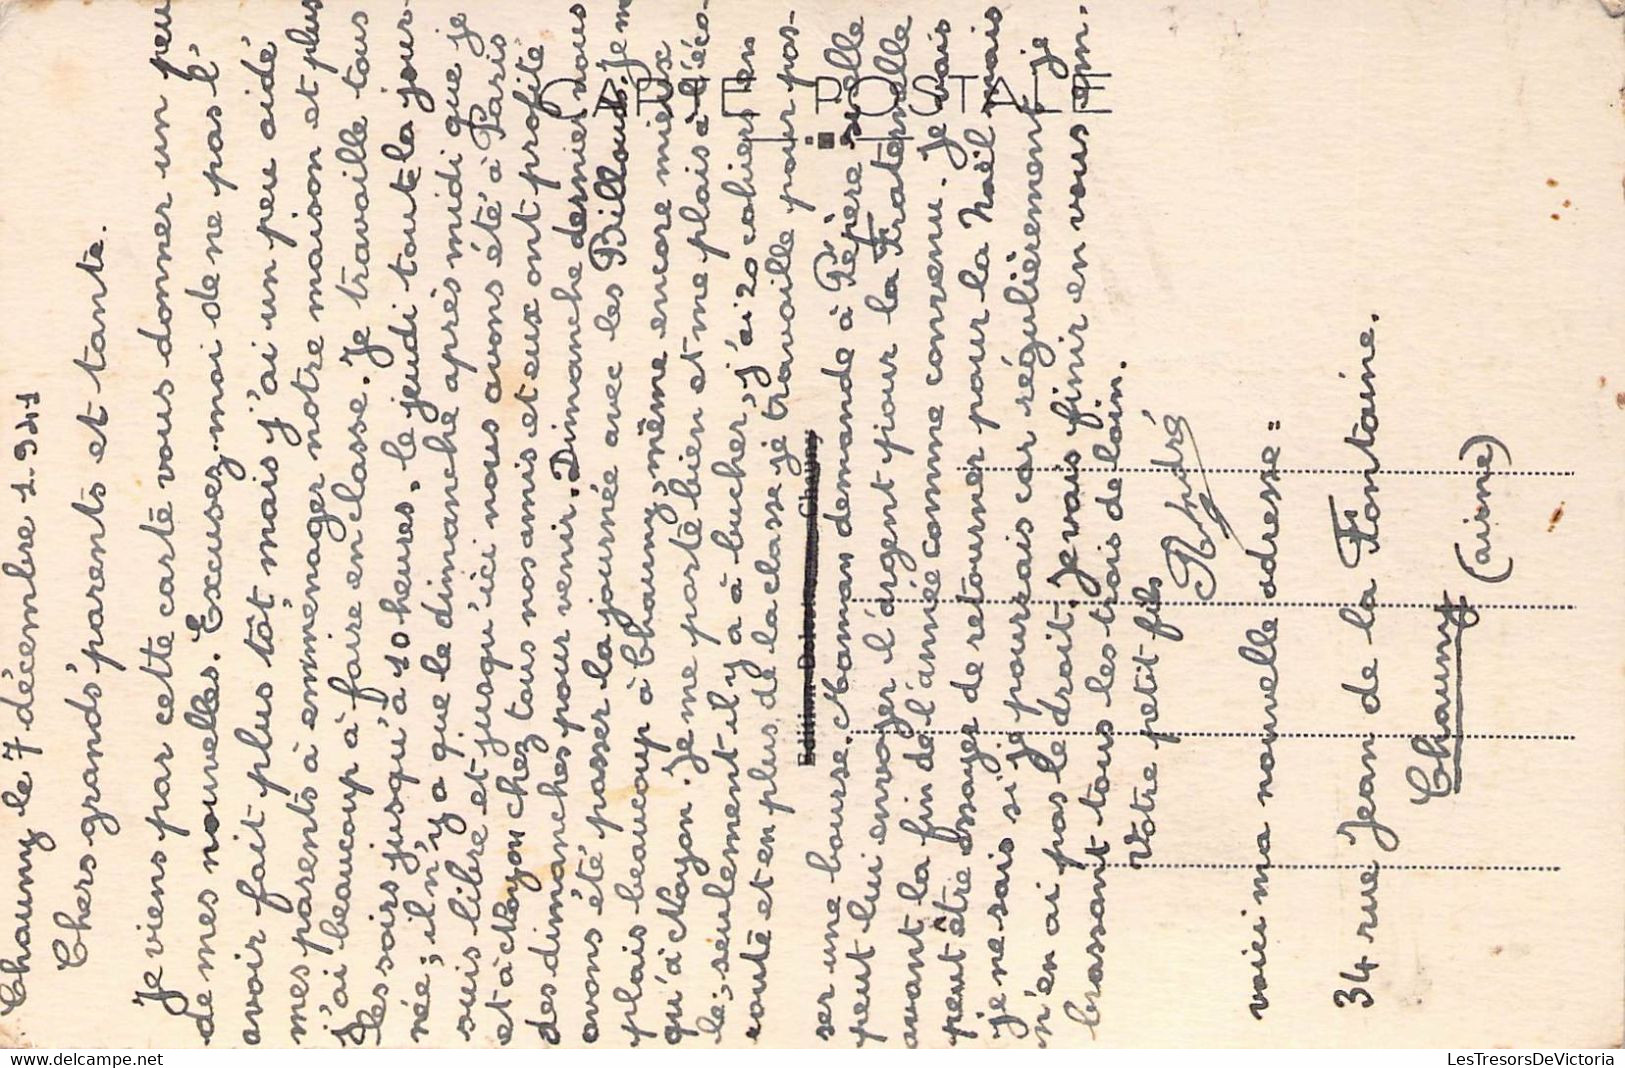 Chauny le 7 décembre 1941
Chers grands'parents et tante.
Je viens par cette carte vous donner un peu
de mes nouvelles. Excusez moi de ne pas l'
avoir fait plus tôt, mais j'ai un peu aidé
mes parents à emmenager notre maison et plus
j'ai beaucoup à faire en classe. Je travaille tous
les soirs jusqu'à 10 heures. le jeudi toute la jour-
née; il n'y a que le dimanche après midi que je
suis libre et jusqu'ici nous avons été à Paris
et à Noyon chez tous nos amis et eux ont profité
des dimanches pour venir. Dimanche dernier nous
avons été passer la journée avec les Billouts. Je m
plais beaucoup à Chauny, même encore mieux
qu'à Noyon. Je me porte bien et me plais à l'éco-
le; seulement il y a à bucher, j'ai 20 cahiers en
route et en plus de la classe je travaille pour pas-
ser une bourse. Maman demande à Pépère si elle
peut lui envoyer l'argent pour la Fraternelle
avant la fin de l'année comme convenu. Je vais
peut être essayer de retourner pour la Noël mais
je ne sais si je pourrais car régulièrement je
n'en ai pas le droit. Je vais finir en vous em.
brassant tous les trois de loin.
Votre petit fils
André
voici ma nouvelle adresse =
34 rue Jean de la Fontaine.
Chauny
(aisne)
CARTE POSTALE
LesTresorsDeVictoria